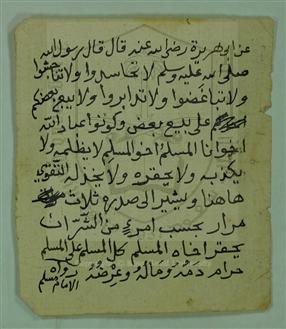 عن ابي هريرة رضي الله عنه قال قال رسول الله
صلى الله عليه وسلم لا تحاسدوا ولا تناجشوا
ولا تباغضوا ولا تدابروا ولا يبيع بعضكم
على بيع بعض وكونوا عباد الله
اخوانا المسلم اخو المسلم لا يظلمه ولا
يكذبه ولا يحقره ولا يخذله التقوى
هاهنا ويشير الى صدره ثلاث
مرار بحسب امرئ من الشر ان
يحقر اخاه المسلم كل المسلم على المسلم
حرام دمه وماله وعرضه رواه
الامام مسلم